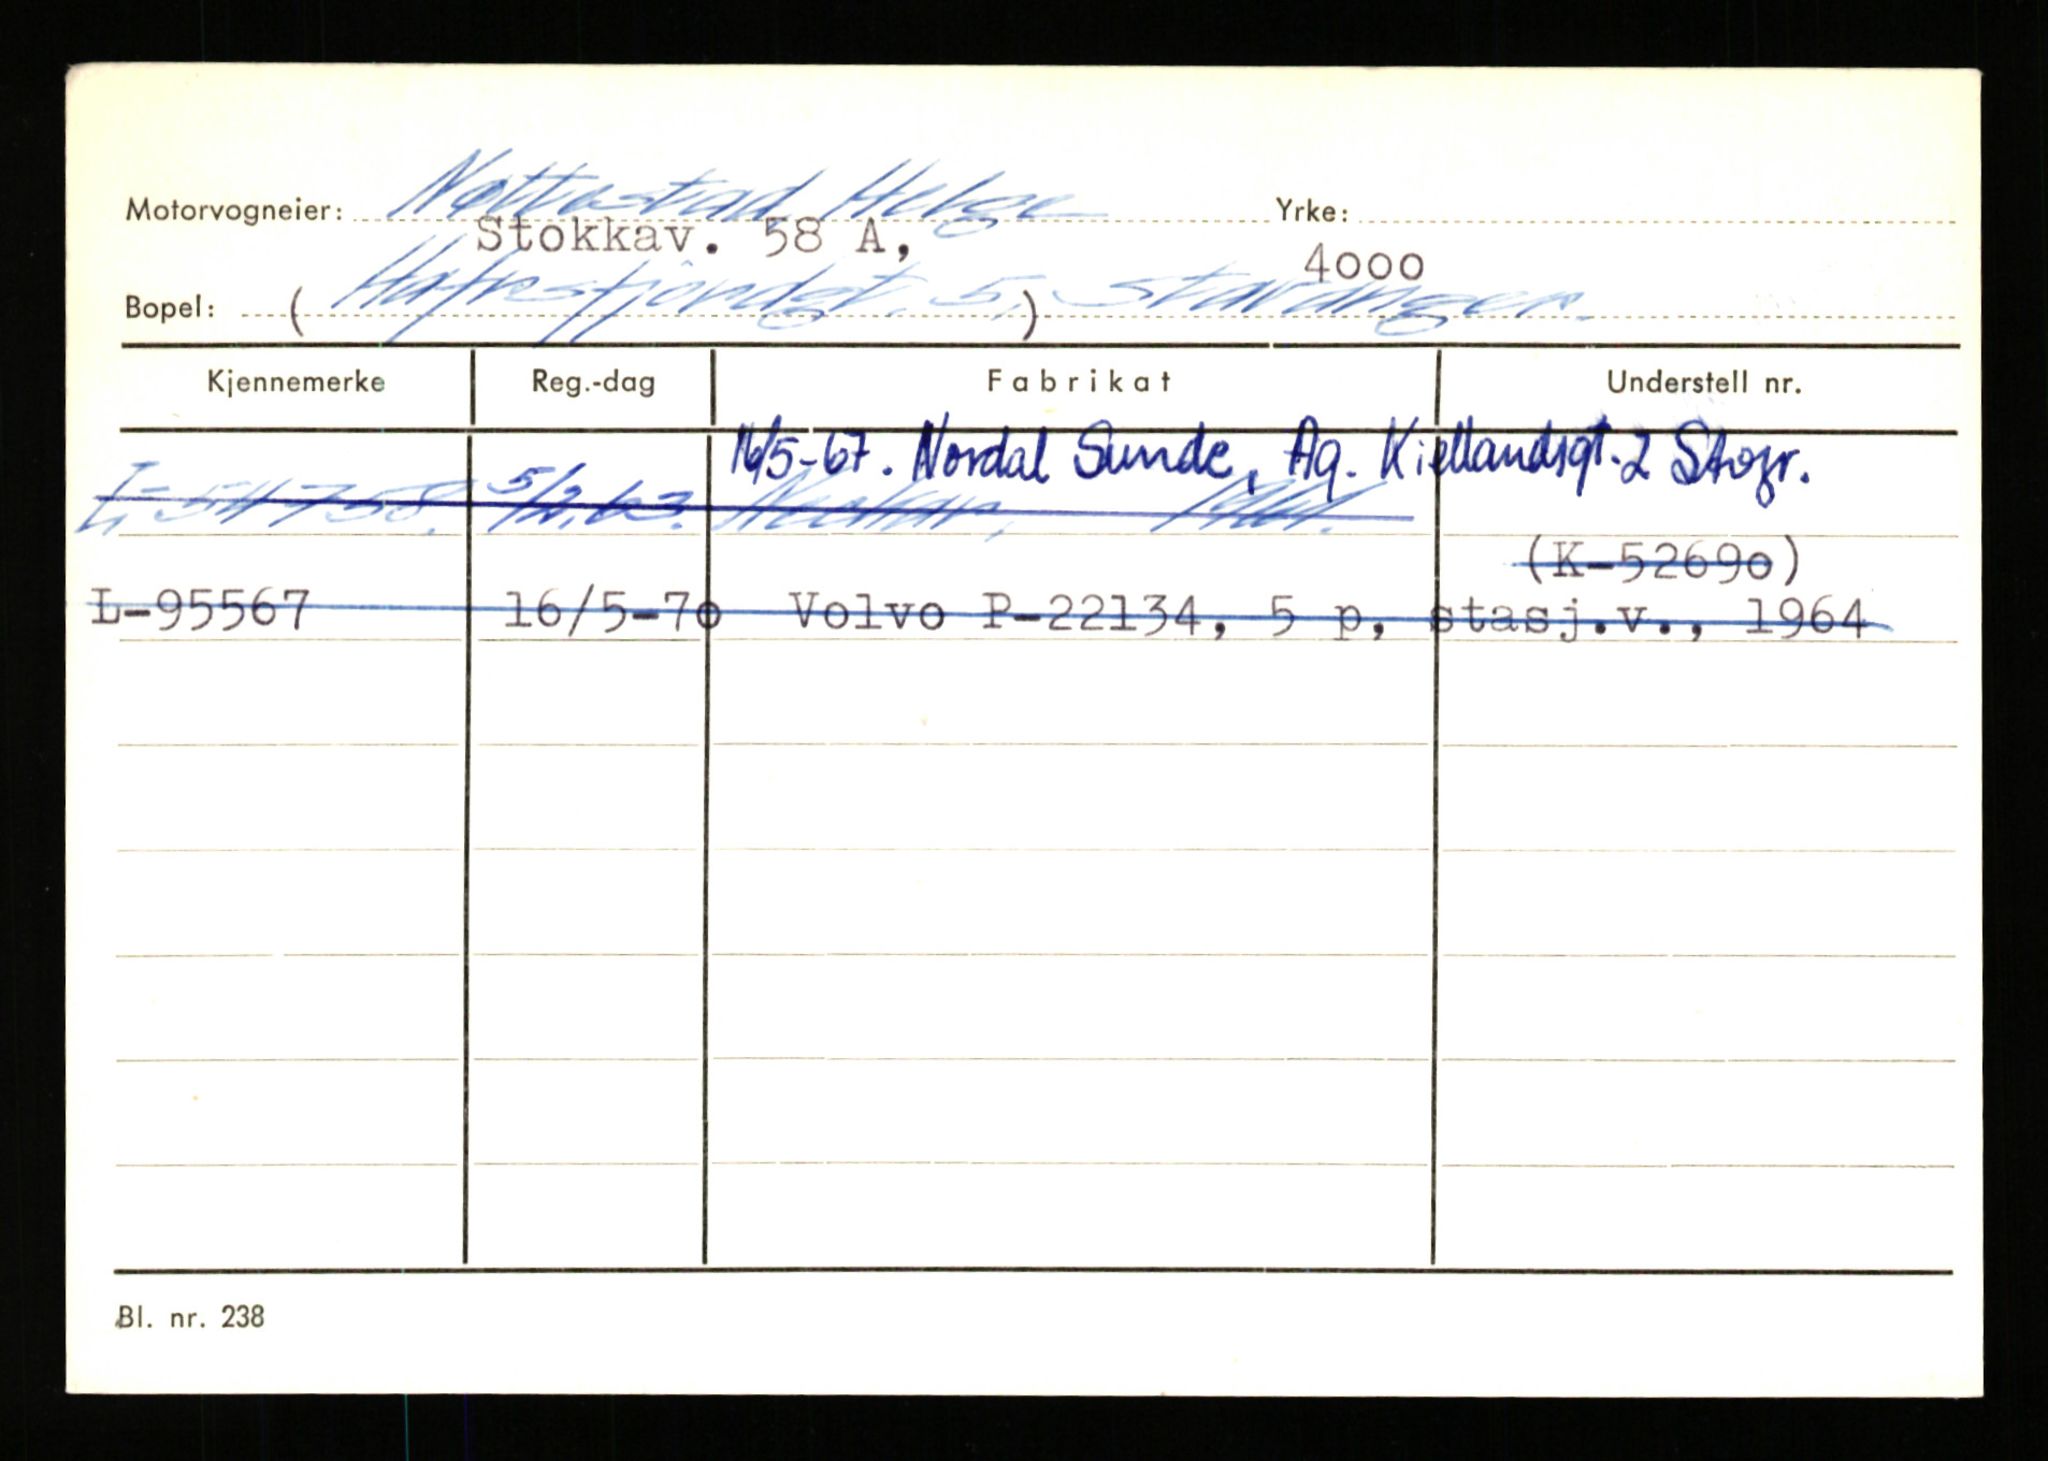 Motorvogneier: Nøttestad Helge Yrke:
Stokkav. 58 A,
4000
Bopel: (Hafrsfjordgt. 5,) Stavanger.
Kjennemerke Reg.-dag Fabrikat Understell nr.
16/5-67. Nordal Sunde, Ag. Kiellandsgt. 2 Stvgr.
L-54758. 5/2.63.
(K-52690)
L-95567 16/5-70 Volvo P-22134, 5 p, stasj.v., 1964
Bl. nr. 238